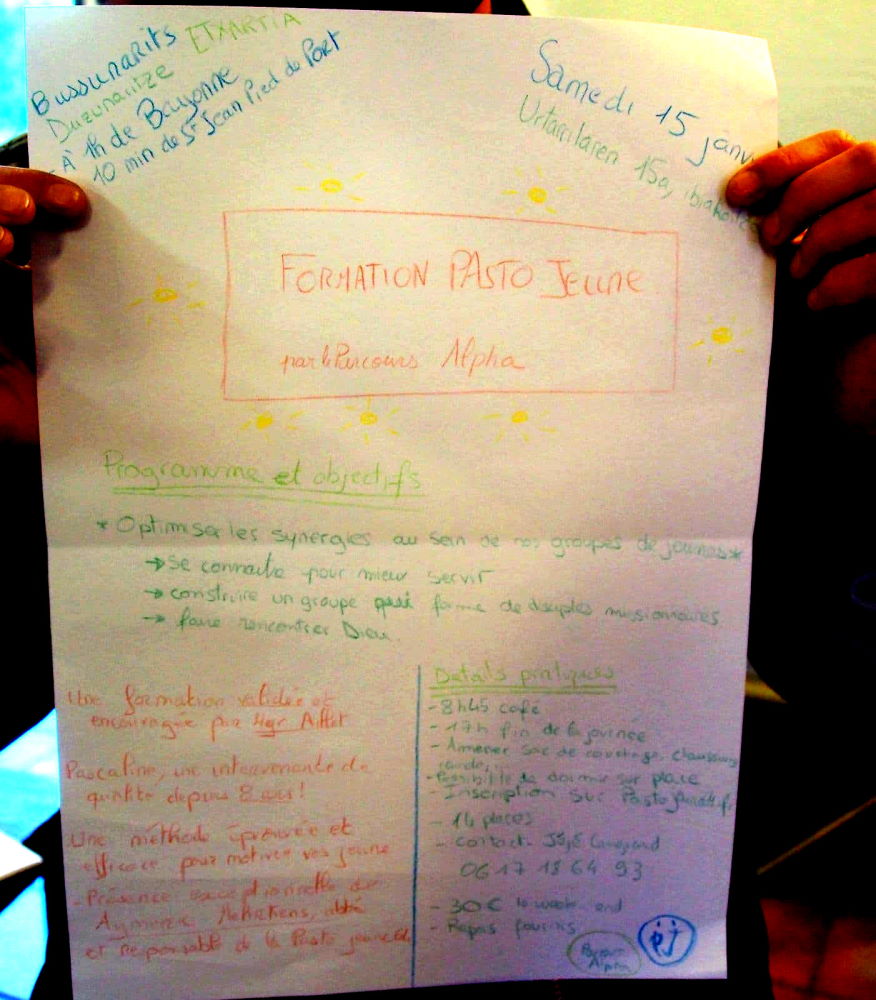 Bussunarits ETXARTIA
Duzunaritze
- À 1h de Bayonne
10 min de St Jean Pied de Port
Samedi 15 janv
Urtarrilaren 15a,
FORMATION PASTO Jeune
par le Parcours Alpha
Programme et objectifs
* Optimiser les synergies au sein de nos groupes de jeunes *
→ se connaitre pour mieux servir
→ construire un groupe qui forme de disciples missionnaires
→ faire rencontrer Dieu.
Une formation validée et
encouragée par Mgr Aillet
Pascaline, une intervenante de
qualité depuis 8 ans!
Une méthode éprouvée et
efficace pour motiver vos jeune
- Présence exceptionnelle de
Aymeric, abbé
et responsable de la Pasto jeune
Détails pratiques
- 8h45 café
- 17h fin de la journée
- Amener sac de couchage, chaussons
- Possibilité de dormir sur place
- Inscription sur
- 14 places
- contact
06 17 18 64 93
- 30€ le week end
- Repas fournis
Parcours
Alpha
PJ